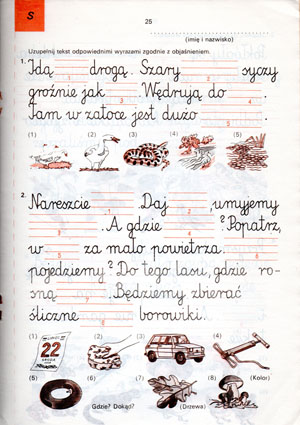 S
25
(imię i nazwisko)
Uzupełnij tekst odpowiednimi wyrazami zgodnie z objaśnieniem.
1. Idą 1 drogą. Szary 2 syczy
groźnie jak 3 . Wędrują do 4 .
Tam w zatoce jest dużo 5 .
(1) (2) (3) (4) (5)
2. Nareszcie 1 . Daj 2 , umyjemy
3 . A gdzie 4 ? Popatrz,
w 5 za mało powietrza.
pojedziemy? Do tego lasu, gdzie ro-
sną 7 . Będziemy zbierać
śliczne 8 borowiki.
(1) (2) (3) (4)
22
(5) (6) (7) (8)
Gdzie? Dokąd? (Drzewa) (Kolor)